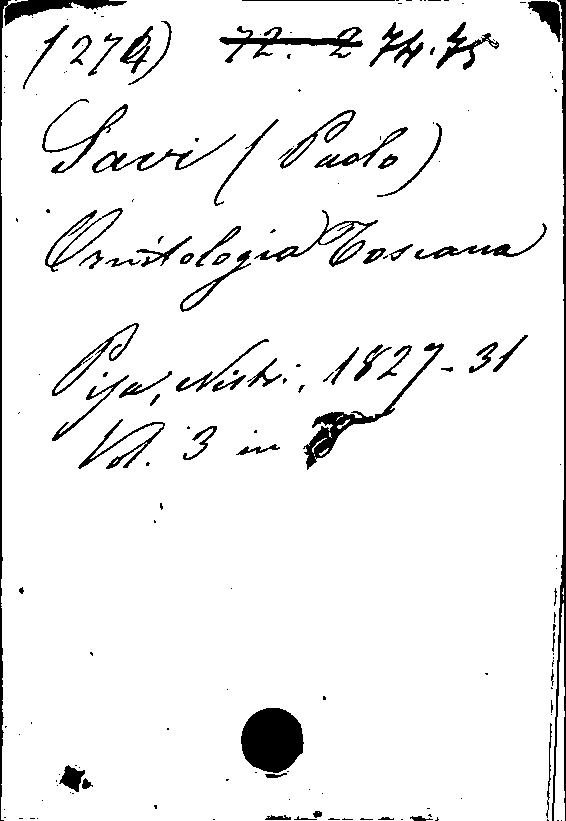 (274) 72. 2 74.75
Savi (Paolo)
Ornitologia Toscana
Pisa, Nistri, 1827-31
Vol. 3 in 8